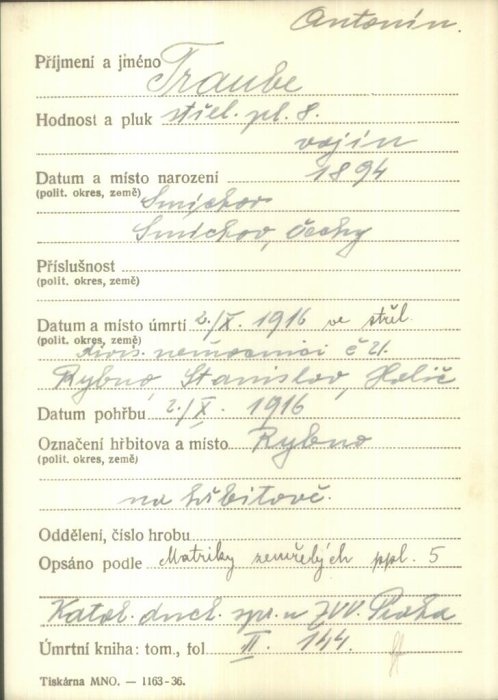 Antonín.
Příjmení a jméno Traube
Hodnost a pluk střel. pl. 8.
vojín
Datum a místo narození 1894
(polit. okres, země) Smíchov
Smíchov, Čechy
Příslušnost
(polit. okres, země)
Datum a místo úmrtí 2./X. 1916 ve střel.
(polit. okres, země) divis. nemocnici č 21.
Rybno, Stanislov, Halič
Datum pohřbu 2./X. 1916
Označení hřbitova a místo Rybno
(polit. okres, země)
na hřbitově.
Oddělení, číslo hrobu
Opsáno podle Matriky zemřelých ppl. 5
Katol. duch. spr. u ZVV. Praha
Úmrtní kniha: tom., fol II. 144.
Tiskárna MNO. — 1163-36.